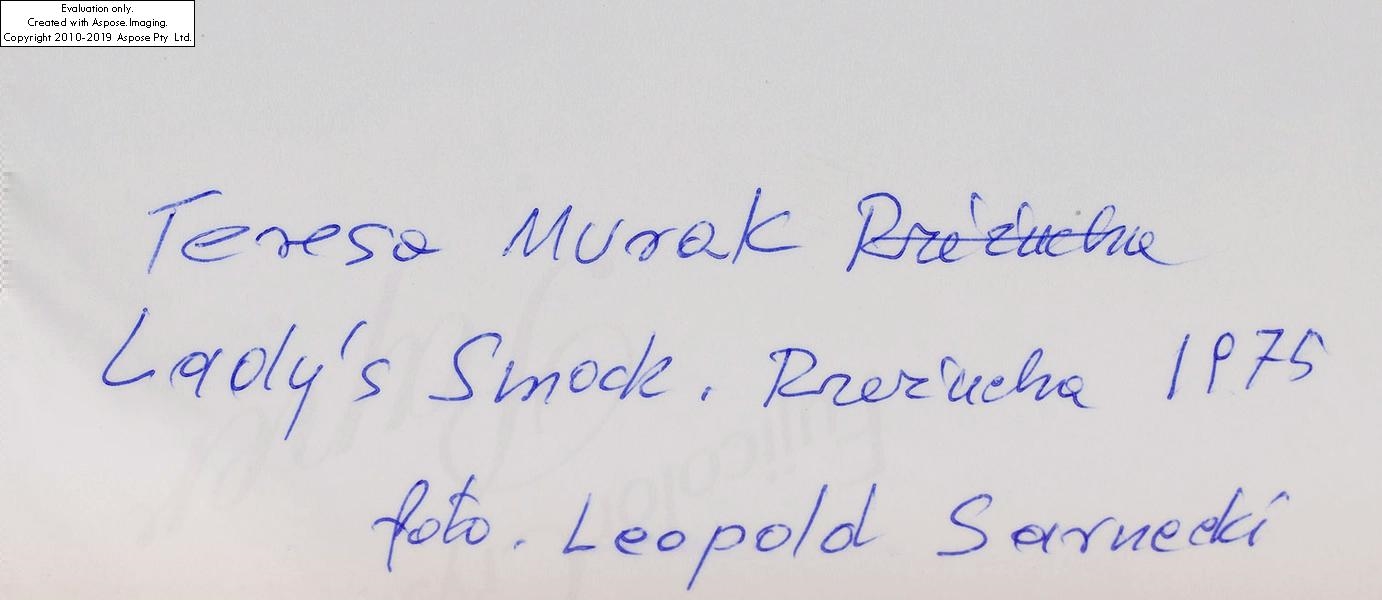 Evaluation only.
Created with Aspose.Imaging.
Copyright 2010-2019 Aspose Pty Ltd.
Teresa Murak Rzeżucha
Lady's Smock. Rzeżucha 1975
foto. Leopold Sarnecki
Fujicolor